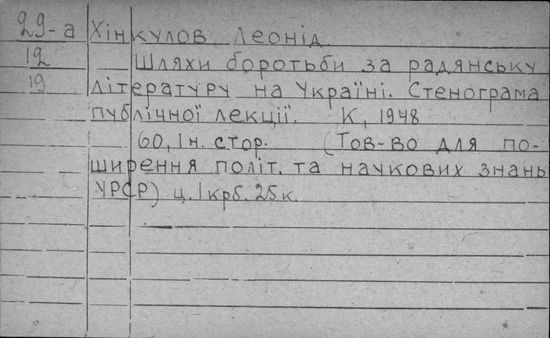 29-а Хінкулов Леонід
12 Шляхи боротьби за радянську
19 літературу на Україні. Стенограма
публічної лекції. К, 1948
60, 1 н. стор. (Тов-во для по-
ширення політ. та наукових знань
УРСР) ц. 1 крб. 25 к.